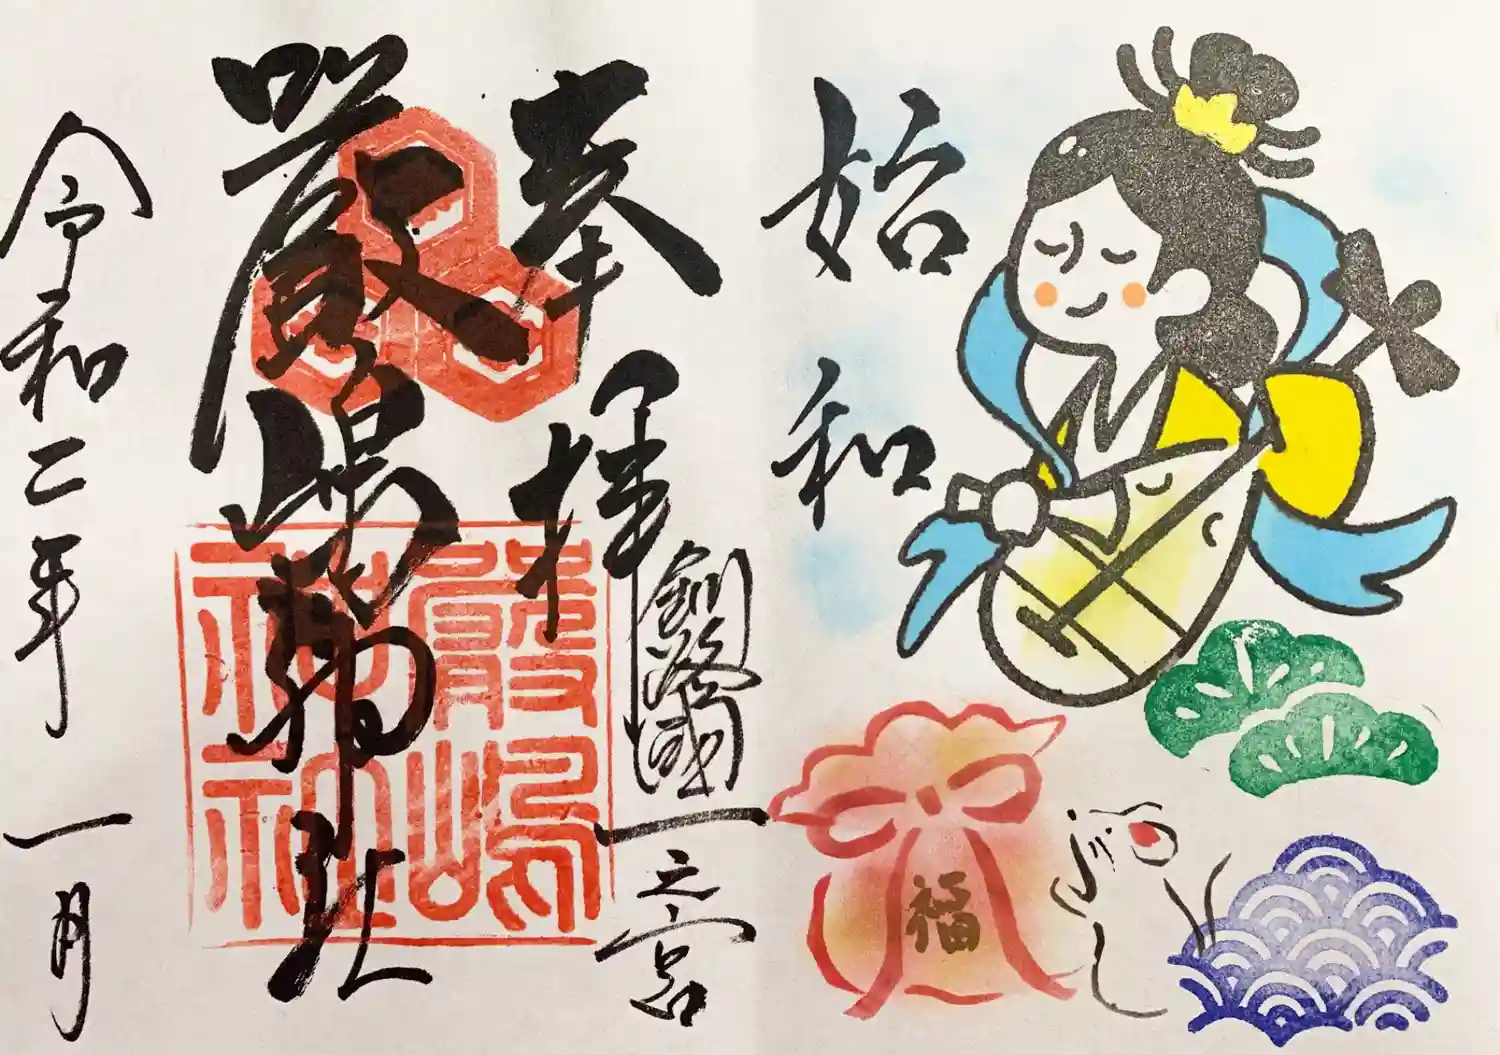 始和
福
奉拝
釧路國一之宮
厳嶋神社
厳嶋神社
令和二年一月